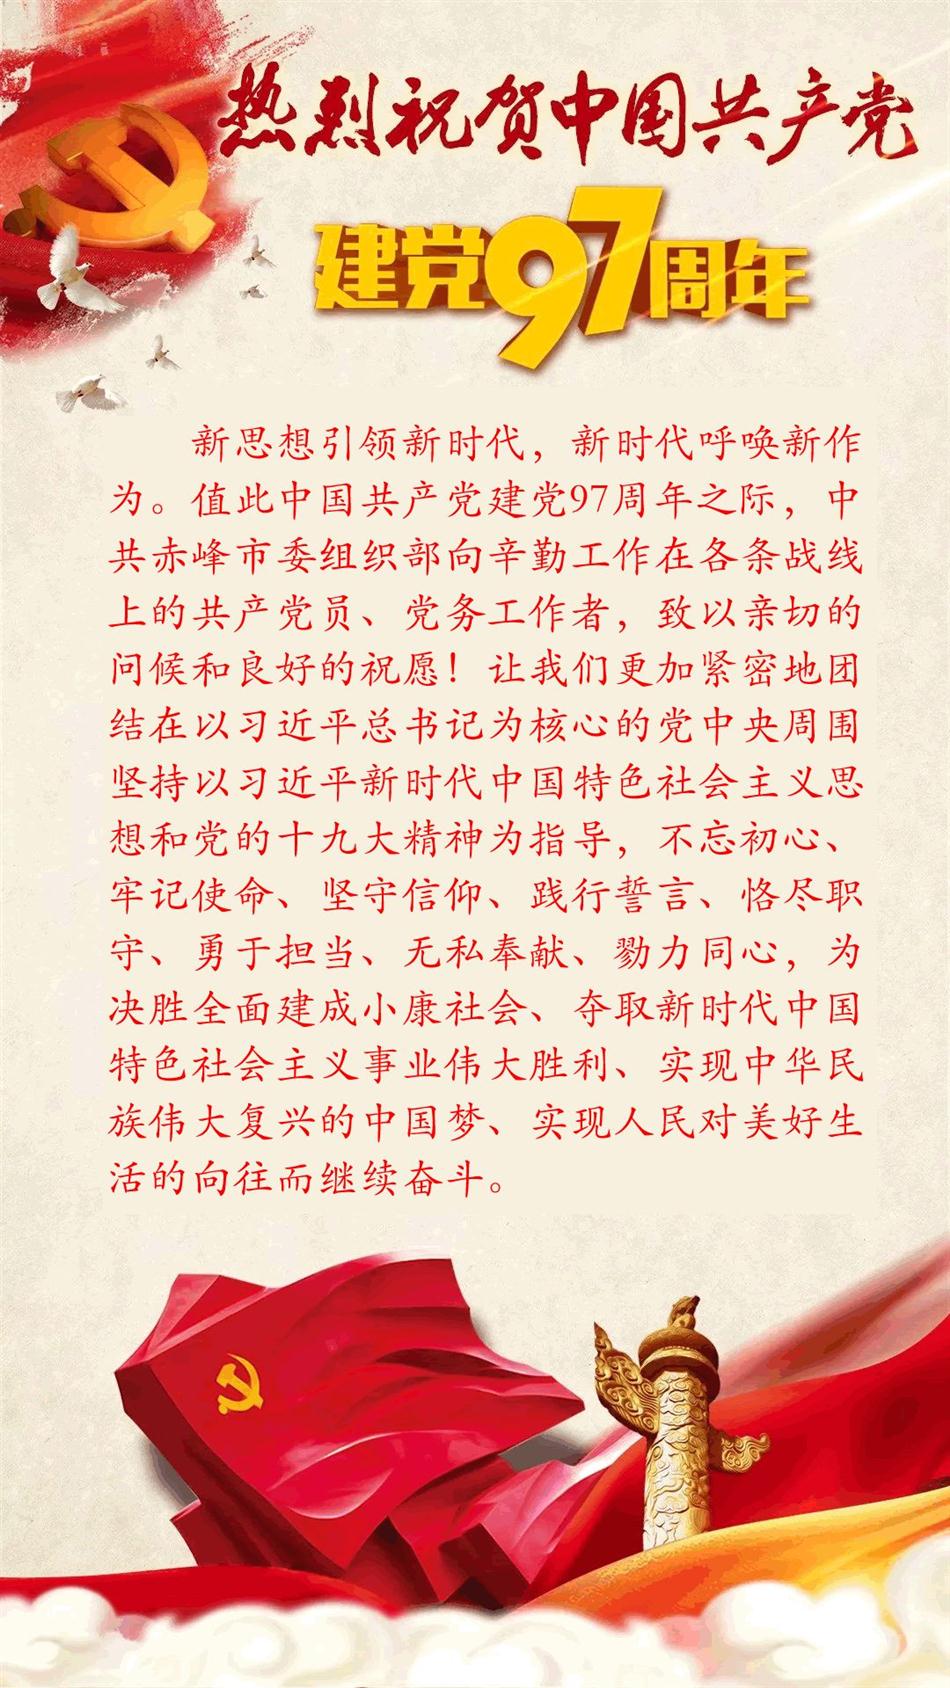 热烈祝贺中国共产党
建党97周年
新思想引领新时代，新时代呼唤新作
为。值此中国共产党建党97周年之际，中
共赤峰市委组织部向辛勤工作在各条战线
上的共产党员、党务工作者，致以亲切的
问候和良好的祝愿！让我们更加紧密地团
结在以习近平总书记为核心的党中央周围
坚持以习近平新时代中国特色社会主义思
想和党的十九大精神为指导，不忘初心、
牢记使命、坚守信仰、践行誓言、恪尽职
守、勇于担当、无私奉献、勠力同心，为
决胜全面建成小康社会、夺取新时代中国
特色社会主义事业伟大胜利、实现中华民
族伟大复兴的中国梦、实现人民对美好生
活的向往而继续奋斗。